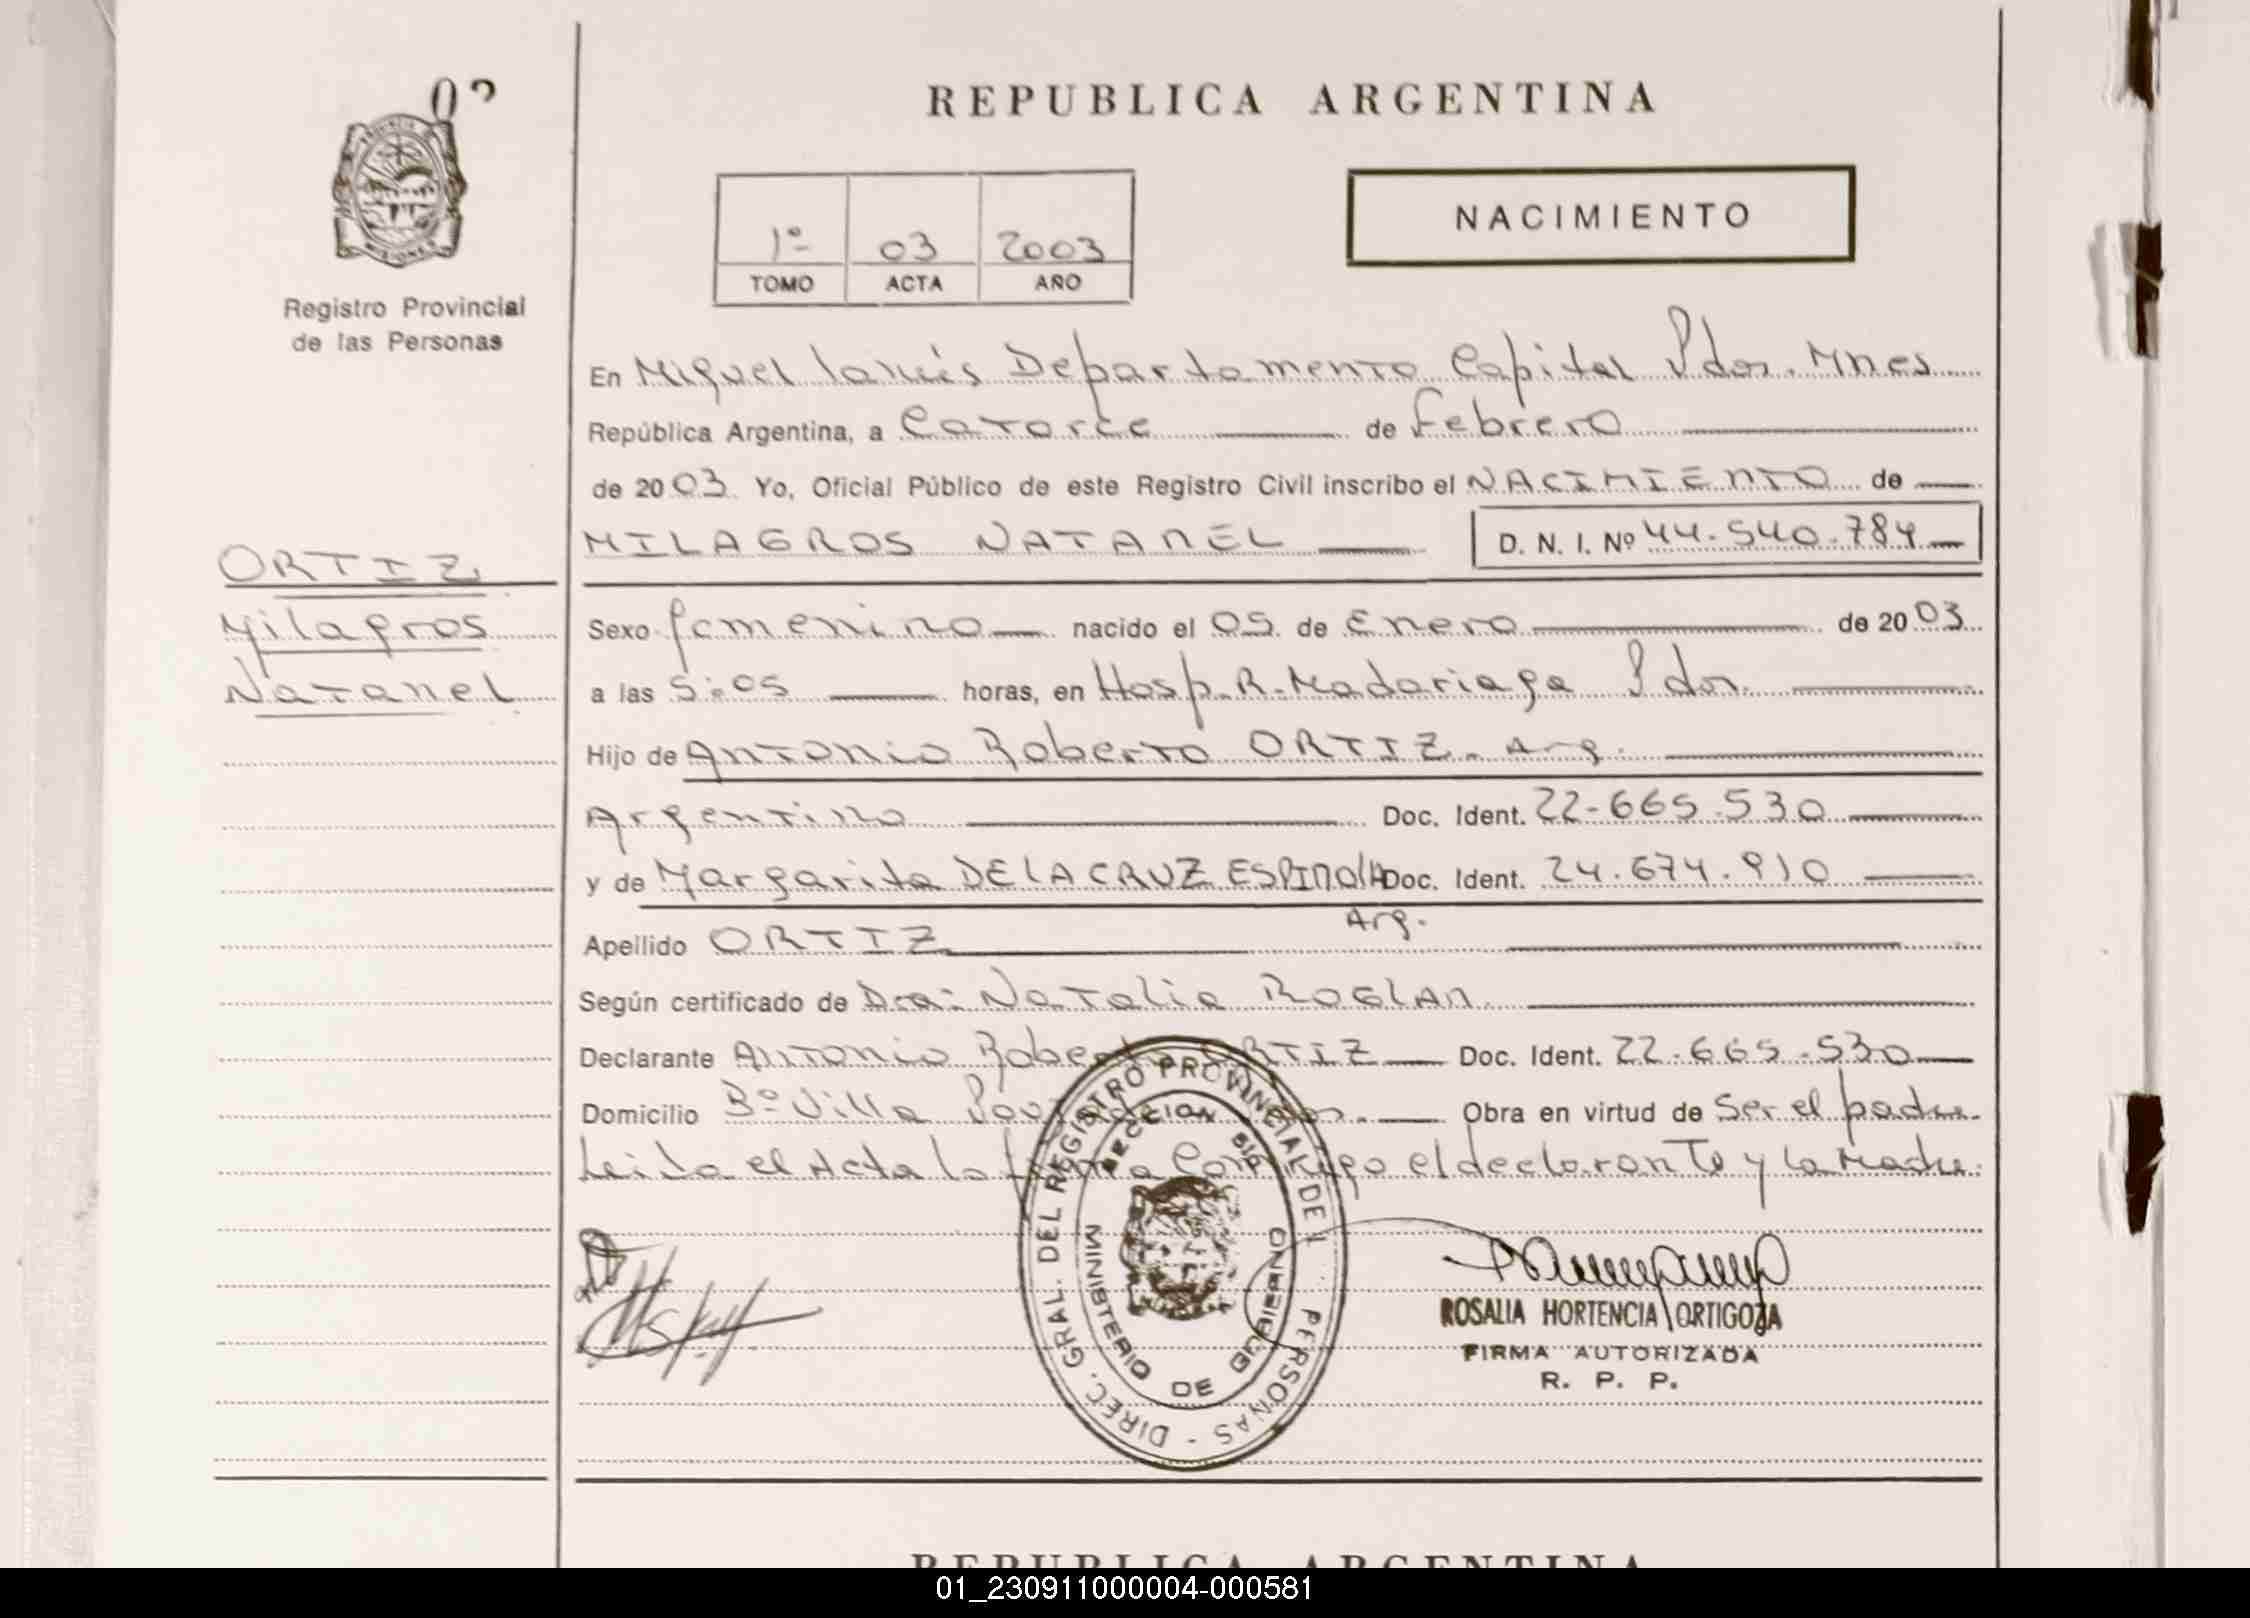 03
REPUBLICA ARGENTINA
PROVINCIA
MISIONES
Registro Provincial
de las Personas
1º 03 2003
TOMO ACTA AÑO
NACIMIENTO
En Miguel Lanús Departamento Capital Pdas. Mnes
República Argentina, a Catorce de Febrero
de 2003 Yo, Oficial Público de este Registro Civil inscribo el NACIMIENTO de
MILAGROS NATANEL D. N. I. Nº 44.540.784
ORTIZ
Milagros
Natanel
Sexo femenino nacido el 05 de Enero de 2003
a las 5:05 horas, en Hosp. R. Madariaga Pdas.
Hijo de Antonio Roberto ORTIZ - Arg.
Argentino Doc. Ident. 22-665.530
y de Margarita DE LA CRUZ ESPINOLA Doc. Ident. 24.674.910
Arg.
Apellido ORTIZ
Según certificado de Dra: Natalia ROGLAN
Declarante Antonio Roberto ORTIZ Doc. Ident. 22.665.530
Domicilio Bº Villa Obra en virtud de Ser el padre
Leida el Acta la firma Conmigo el declarante y la Madre
DIREC. GRAL. DEL REGISTRO PROVINCIAL DE PERSONAS -
MINISTERIO DE GOBIERNO
ROSALIA HORTENCIA ORTIGOZA
FIRMA AUTORIZADA
R. P. P.
REPUBLICA ARGENTINA
01_230911000004-000581